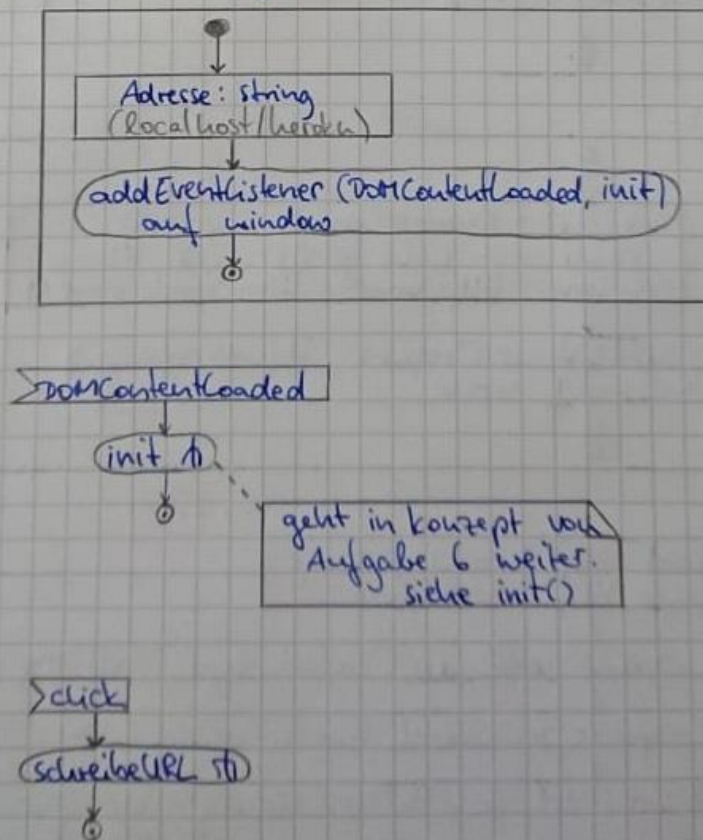 Adresse: string
(localhost/heroku)
addEventListener (DOMContentLoaded, init)
auf window
DOMContentLoaded
init
geht in Konzept von
Aufgabe 6 weiter.
siehe init()
click
schreibeURL